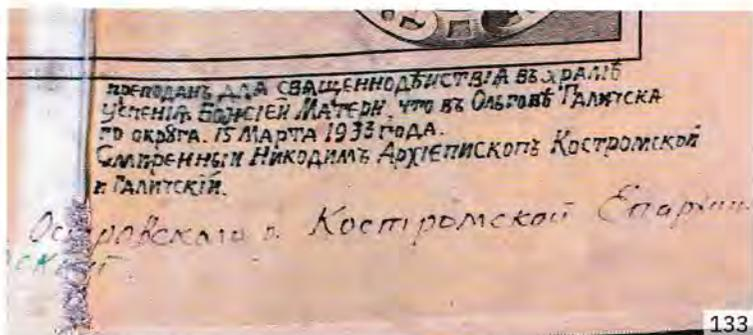 преподанъ для священнодѣйствія въ храмѣ
Успенія Божіей Матери, что въ Ольговѣ Галичска
го округа. 15 Марта 1933 года.
Смиренный Никодимъ Архіепископъ Костромской
и Галичскій.
Островскаго в. Костромской Епархии
133